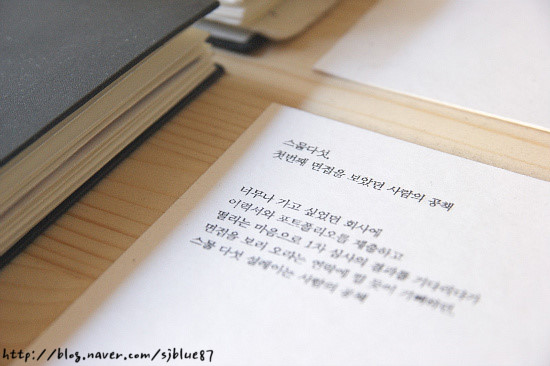 스물다섯,
첫번째 면접을 보았던 사람의 공책
너무나 가고 싶었던 회사에
이력서와 포트폴리오를 제출하고
떨리는 마음으로 1차 심사의 결과를 기다리다가
면접을 보러 오라는 연락에 뛸 듯이 기뻐하던,
스물 다섯 설레이는 사람의 공책
http://blog.naver.com/sjblue87